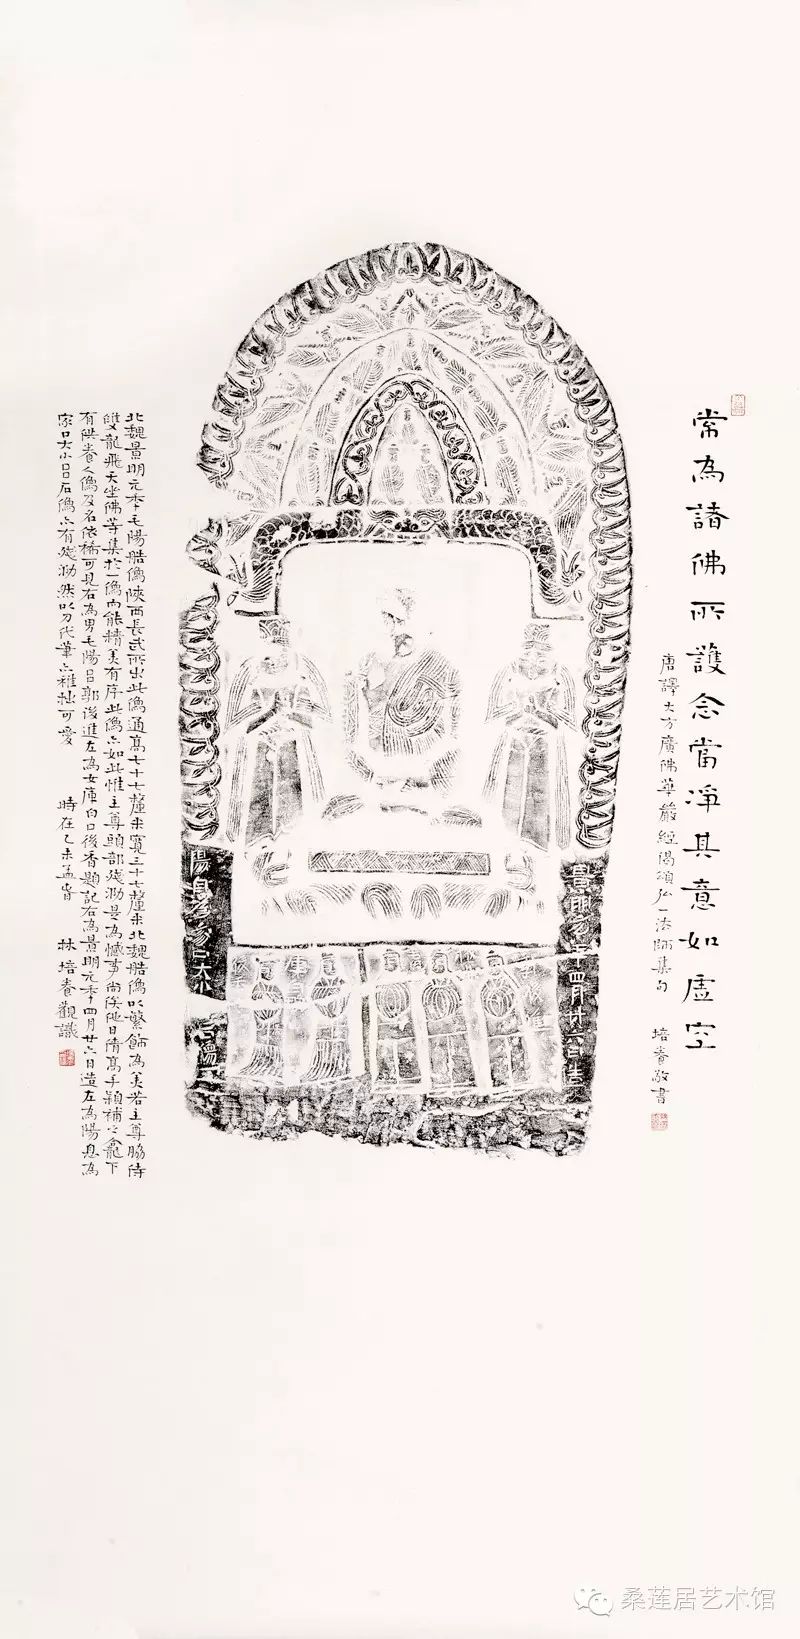 常為諸佛所護念當淨其意如虛空
唐譯大方廣佛華嚴經偈頌弘一法師集句 培養敬書
景明元年四月廿六日造
陽息為家口大小
北魏景明元年毛陽造像陝西長武所出此像通高七十七釐米寬三十七釐米北魏造像以繁飾為美若主尊脇侍
雙龍飛天坐佛等集於一像而能精美有序此像亦如此惟主尊頭部殘泐是為憾事尚俟他日倩高手穎補之龕下
有供養人像及名依稀可見右為男毛陽呂郭後進左為女庫向口後香題記右為景明元年四月廿六日造左為陽息為
家口大小呂石像亦有殘泐然以刀代筆亦稚拙可愛 時在乙未孟春 林培養觀識
桑莲居艺术馆